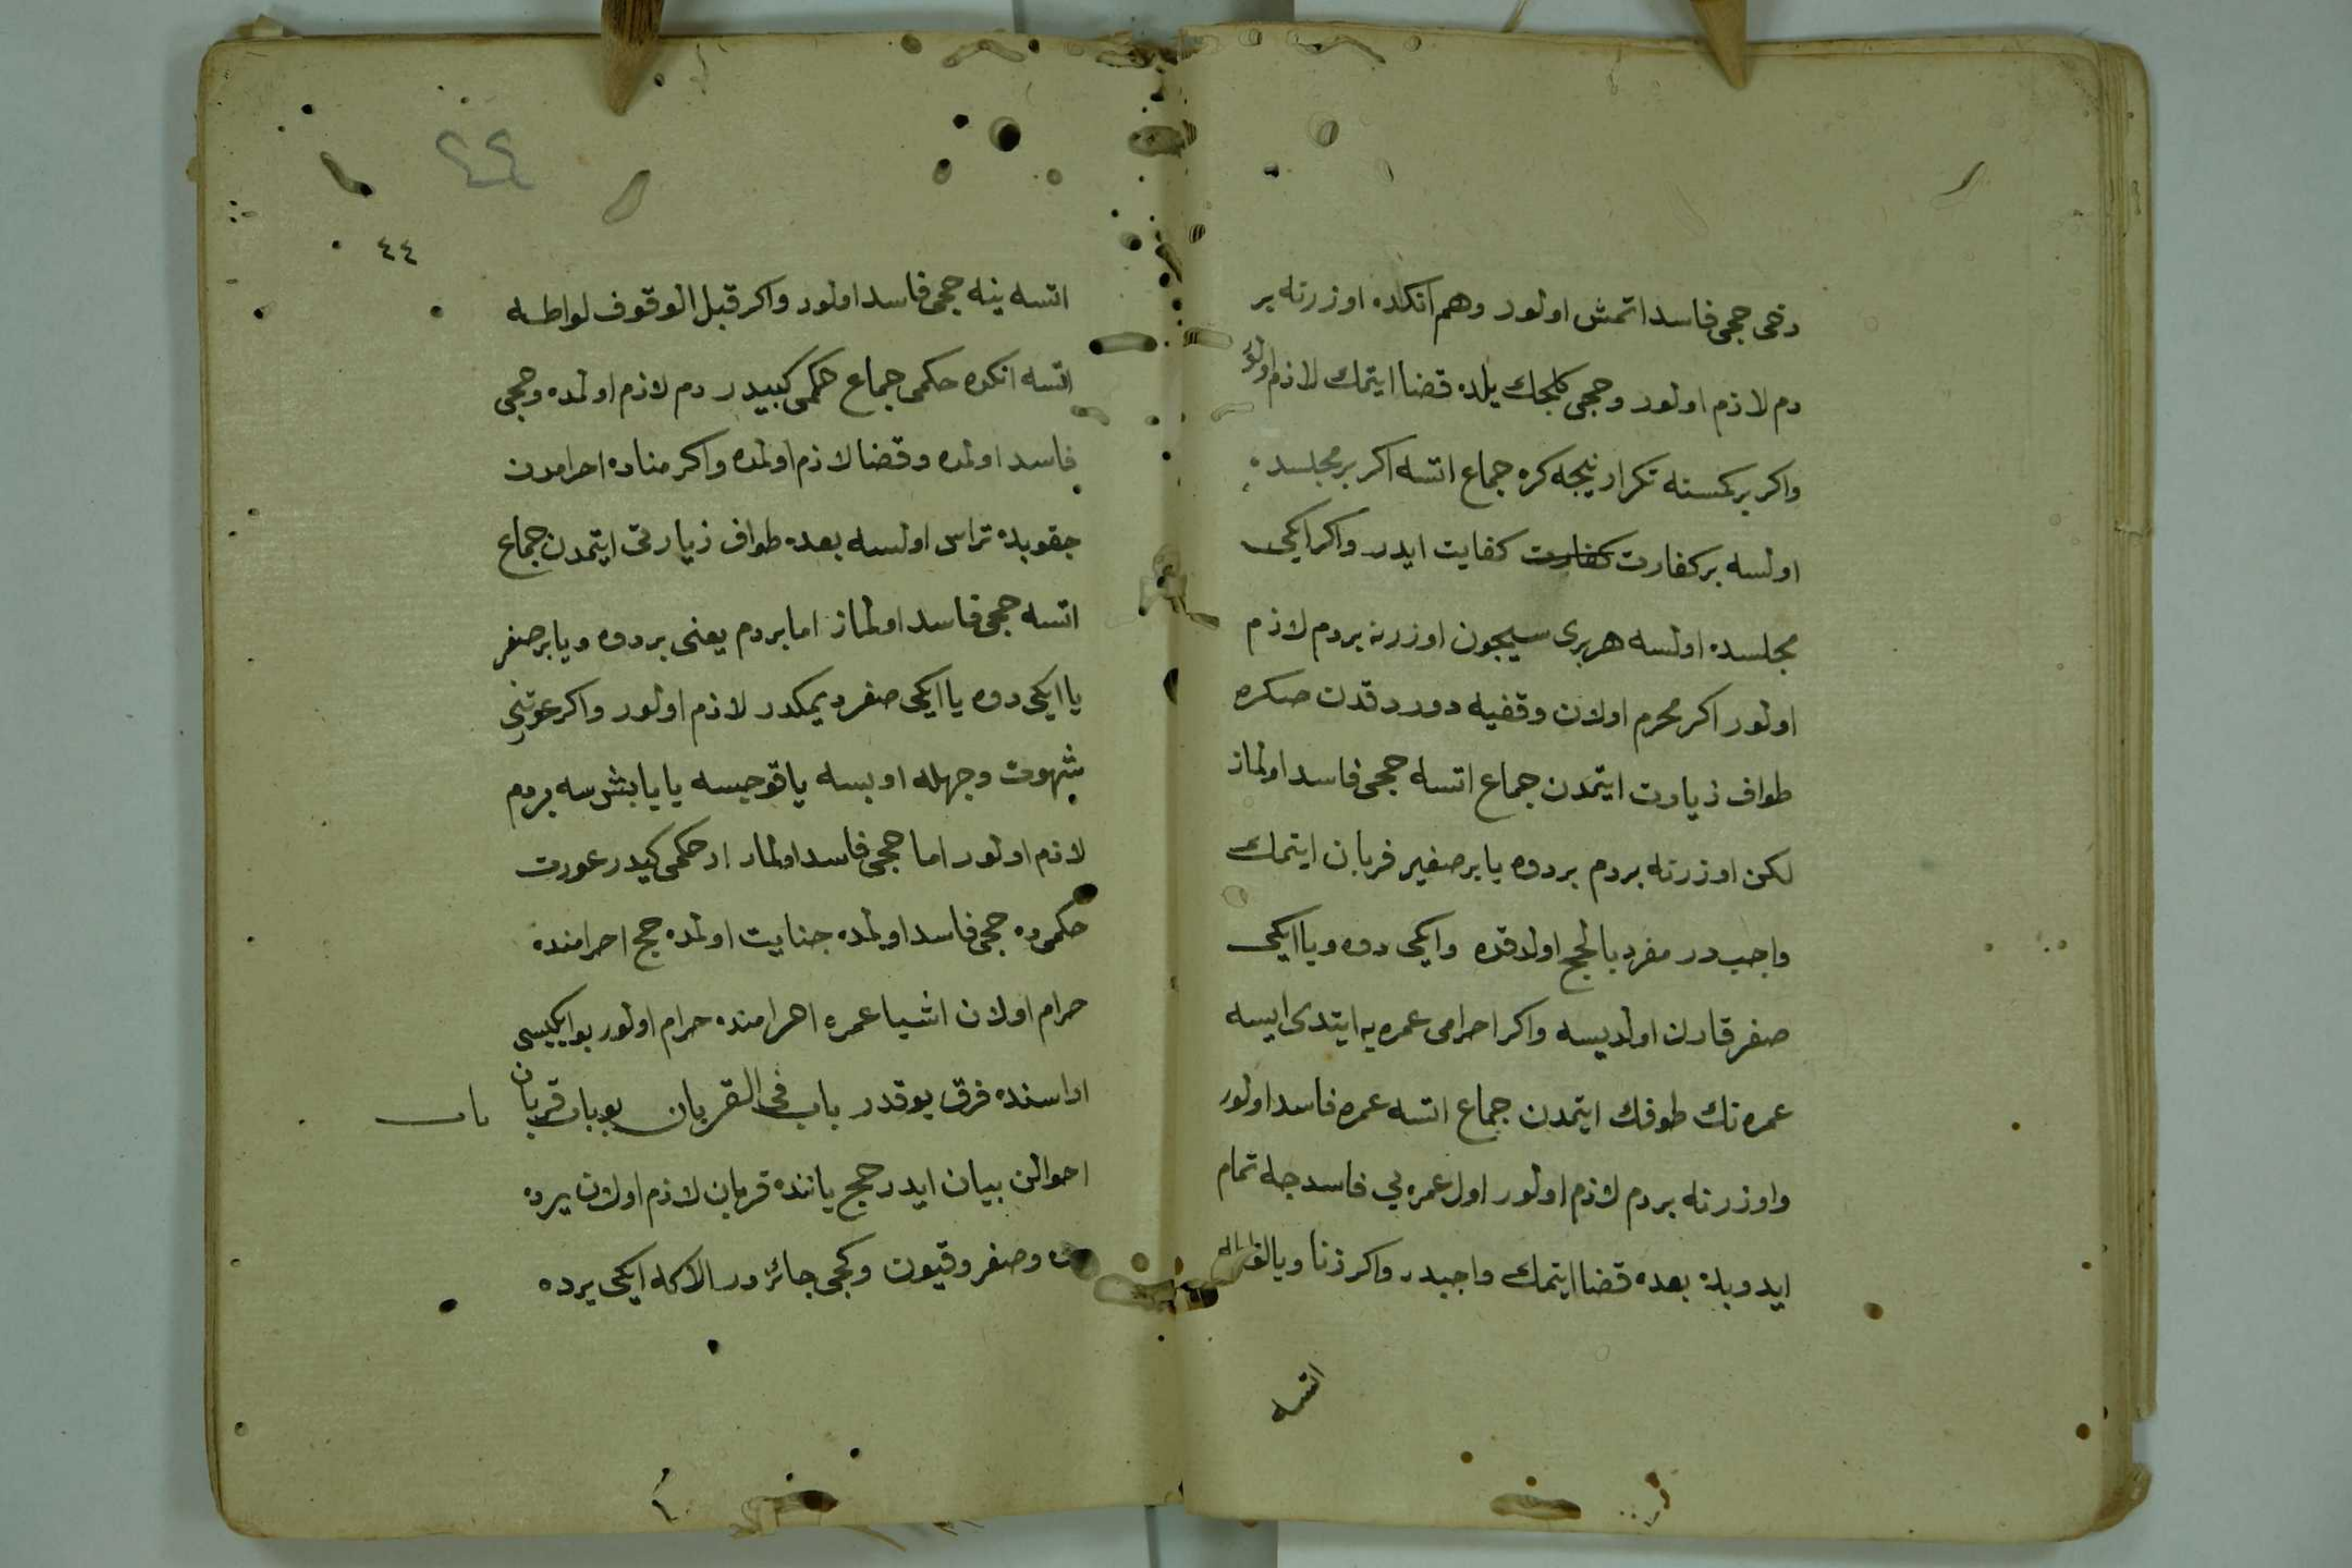 دخى حجى فاسد اتمش اولور وهم انكده اوزرنه بر
دم لازم اولور وحجى كلجك يلده قضا ايتمك لازم اولور
واكر بر كمسنه تكرار نيجه كره جماع اتسه اكر بر مجلسده
اولسه بر كفارت كفارت كفايت ايدر واكر ايكى
مجلسده اولسه هر برى سيجون اوزرنه بر دم لازم
اولور اكر محرم اولان وقفيه دورد قدن صكره
طواف زيارت ايتمدن جماع اتسه حجى فاسد اولماز
لكن اوزرنه بر دم بر دوه يا بر صغير قربان ايتمك
واجب در مفرد بالحج اولدقده وايكى دوه ويا ايكى
صغر قارن اولديسه واكر احرامى عمره يه ايتدى ايسه
عمره نك طوفك ايتمدن جماع اتسه عمره فاسد اولور
واوزرنه بر دم لازم اولور اول عمره يى فاسد جه تمام
ايدوبده بعده قضا ايتمك واجبدر واكر زنا ويا
اتسه
٤٤
٤٤
اتسه ينه حجى فاسد اولور واكر قبل الوقوف لواطه
اتسه انكده حكمى جماع حكمى كبيدر دم لازم اولمده وحجى
فاسد اولمده وقضا لازم اولمده واكر مناده احرامدن
جقوبده تراش اولسه بعده طواف زيارتى ايتمدن جماع
اتسه حجى فاسد اولماز اما بر دم يعنى بر دوه ويا بر صغر
يا ايكى دوه يا ايكى صغر ديمكدر لازم اولور واكر عورتنى
شهوت وجهله اوبسه يا قوجيسه يا يابشرسه بر دم
لازم اولور اما حجى فاسد اولماز ار حكمى كيدر عورت
حكمى ده حجى فاسد اولمده جنايت اولمده حج احرامنده
حرام اولان اشيا عمره اهرامنده حرام اولور بو ايكيسى
اراسنده فرق يوقدر باب فى القربان بو باب قربان باب
احوالن بيان ايدر حج ياننده قربان لازم اولان يرده
وصغر وقيون وكجى جائز در الا كه ايكى يرده